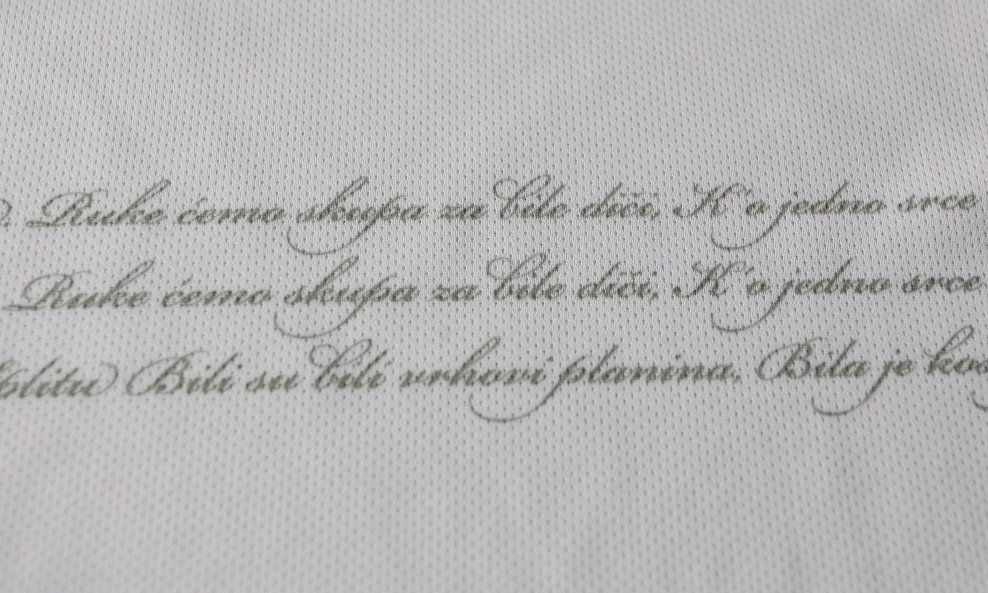 Ruke ćemo skupa za bile dići, K'o jedno srce
Ruke ćemo skupa za bile dići, K'o jedno srce
Splitu Bili su bili vrhovi planina, Bila je